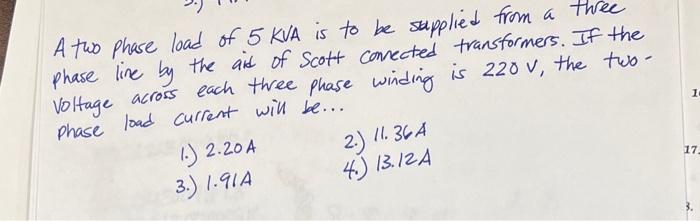 A two phase load of 5 KVA is to be supplied from a three
phase line by the aid of Scott connected transformers. If the
Voltage across each three phase winding is 220 V, the two-
phase load current will be...
1.) 2.20A
2.) 11.36A
3.) 1.91A
4.) 13.12A
17.